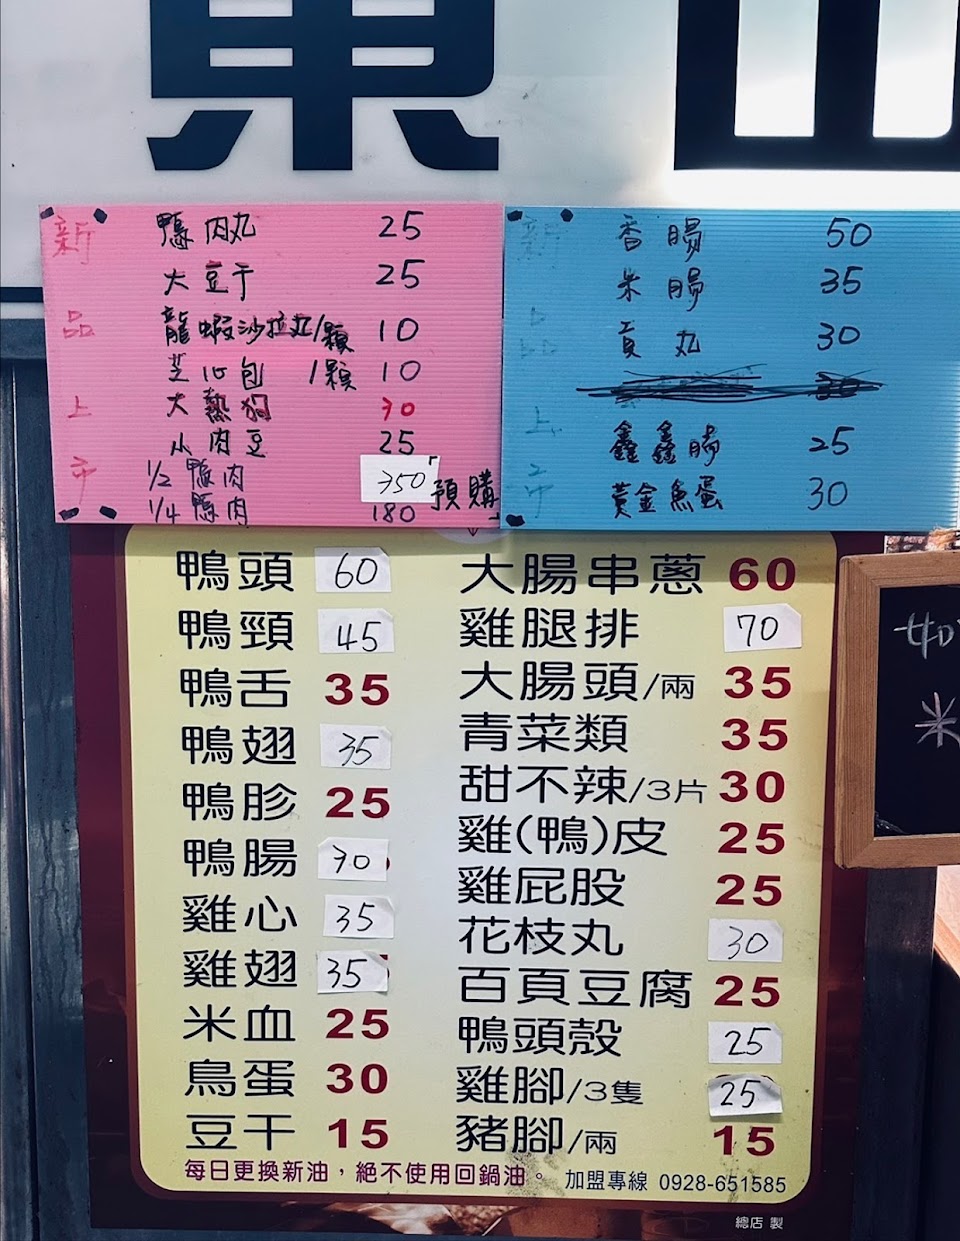 東山
新品上市
鴨肉丸 25
大豆干 25
龍蝦沙拉丸/1顆 10
芝心包 1顆 10
大熱狗 30
小肉豆 25
1/2 鴨肉 350 預購
1/4 鴨肉 180
新品上市
香腸 50
米腸 35
貢丸 30
鑫鑫腸 25
黃金魚蛋 30
鴨頭 60
鴨頸 45
鴨舌 35
鴨翅 35
鴨胗 25
鴨腸 70
雞心 35
雞翅 35
米血 25
鳥蛋 30
豆干 15
大腸串蔥 60
雞腿排 70
大腸頭/兩 35
青菜類 35
甜不辣/3片 30
雞(鴨)皮 25
雞屁股 25
花枝丸 30
百頁豆腐 25
鴨頭殼 25
雞腳/3隻 25
豬腳/兩 15
每日更換新油，絕不使用回鍋油。 加盟專線 0928-651585
總店 製
如
米